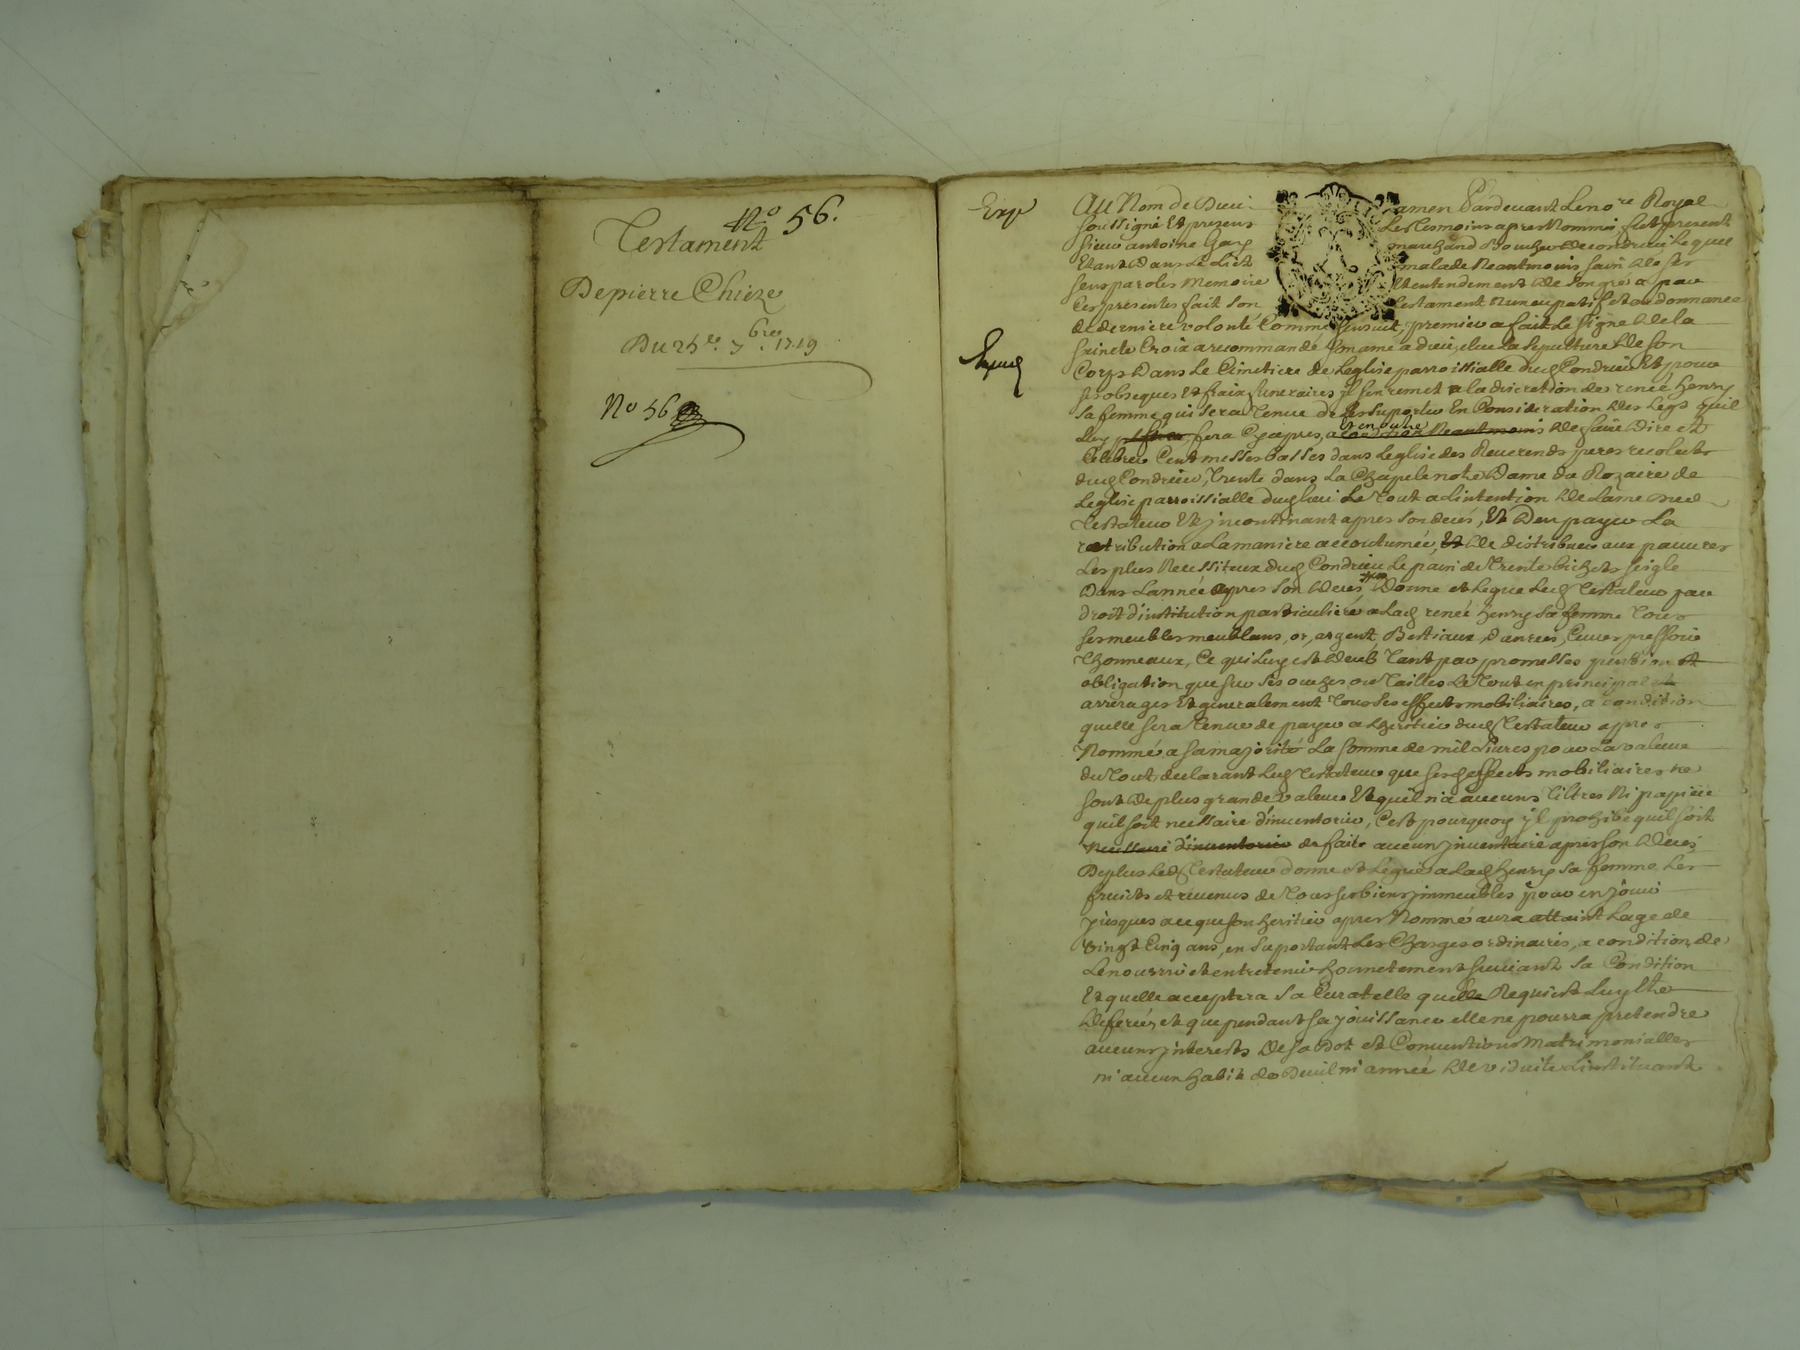 N.º 56.
Testament
De pierre Chieze
Du 25e. 7bre. 1719
No 56
Exp
Au Nom de Dieu amen Pardevant Le no.re Royal
soussigné Et presens Les Tesmoins apres Nommés fut present
sieur antoine Gary marchand Boucher de condrieu Lequel
Etant Dans Le Lict malade Neantmoins sain de ses
sens paroles Memoire Et entendement de son gré a par
Ces presentes fait son Testament Nuncupatif et ordonnance
de derniere volonté Comme sensuit, premier a fait Le signe de la
saincte Croix a recommandé son ame a dieu, elu La sepulture de son
Corps Dans Le Cimetiere de Leglise parroissialle dud Condrieu Et pour
ses obseques Et fraix funeraires il sen remet a la discretion de renée henry
sa femme qui sera Tenue de Les suporter En Consideration des Legs quil
Luy fera Cyapres, a condition Neantmoins de faire dire et
Celebrer Cent messes basses dans Leglise des Reverends peres recolects
dud Condrieu, Trente dans La Chapele notre Dame du Rozaire de
Leglise parroissialle dud lieu Le Tout a Lintention de Lame dud
Testateur Et incontinant apres son deces, Et Den payer La
retribution a La maniere accoutumée, Et de distribuer aux pauvres
Les plus Necessiteux dud Condrieu Le pain de Trente bichets seigle
Dans Lannée apres son deces, Donne et Legue Led Testateur par
droit d'institution particuliere a Lad renée henry sa femme Tous
ses meubles meublans, or, argent, Bestiaux, danrées, Cuves pressoir
Thonneaux, Ce qui Luy est deub Tant par promesses pention et
obligation que sur ses ou Tailles Le Tout en principal et
arrerages Et generalement Tous ses effects mobiliaires, a condition
quelle sera Tenue de payer a Lheritier dud Testateur apres
Nommé a sa majorité La somme de mil Livres pour La valeur
du Tout, declarant Led Testateur que sesd effects mobiliaires ne
sont de plus grande valeur Et quil nia aucuns Tiltres Ni papiers
quil soit necessaire d'inventorier, Cest pourquoy il prohibe quil soit
Necessaire d'inventorier de faite aucun inventaire apres son deces
De plus Led Testateur donne et Legue a Lad henry sa femme Les
fruicts et revenus de Tous ses biens immeubles pour en jouir
jusques a ce que son heritier apres Nommé aura attaint Lage de
Vingt Cinq ans, en suportant Les Charges ordinaires, a condition de
Le nourrir et entretenir honnetement suivant sa Condition
Et quelle acceptera sa Curatelle quelle Requiert Luy estre
deferée, et que pendant sa jouissance elle ne pourra pretendre
aucuns interests de sa Dot et Conventions Matrimonialles
ni aucun habit de Deuil ni année de viduite Linstituant